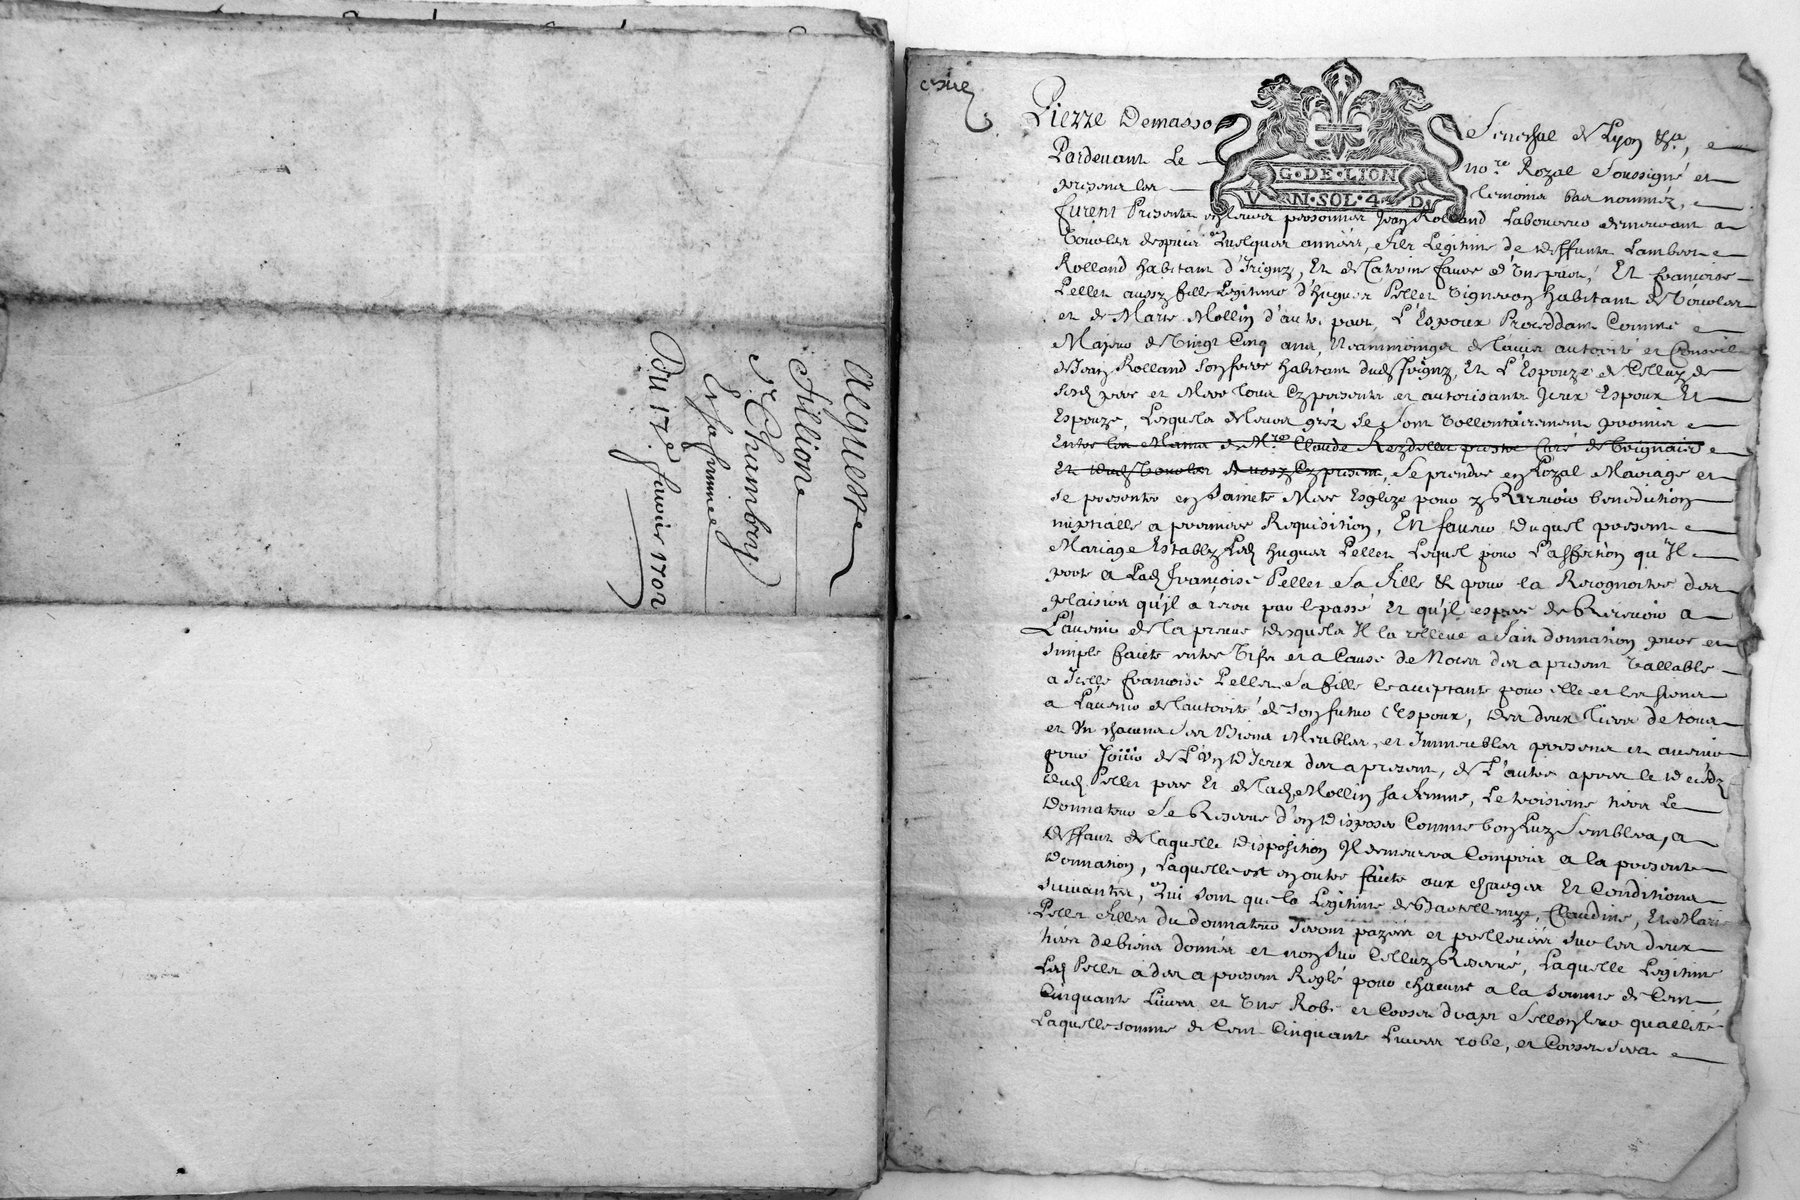 acqueste
fillione
Sr Chambery
Et sa femme
Du 17e fevrier 1702
Pierre Demasso
Senechal de Lyon &a,
G·DE·LION
V RN·SOL·4 D
Pardevant Le
nore Royal Soussigné et
presens les
temoins bas nomméz,
furent Presents en leurs personnes Jean Rolland Laboureur demeurant a
despuis Quelques années, fils Legitime de deffunts Lambert
Rolland habitant d'Irigny, Et de Caterine faure d'Une part, Et francoise
Pellet aussy fille Legitime d'hugues Pellet Vigneron habitant de
et de Marie Mollin d'autre part, L'Espoux Proceddant Comme
Majeur de Vingt Cinq ans, Neammoinges de l'avis autorité et Conseil
de Jean Rolland son frere habitant dud Irigny, Et L'Espouze de Celluy de
sesd pere et Mere tous Cy presents et autorisants Iceux Espoux Et
Espouze, Lesquels de leurs gréz se sont Vollontairement promis
Entre les Mains de Mre Claude prestre Curé de
Et dud aussy Cy present, Se prendre en Loyal Mariage et
se presenter en sainte Mere Esglize pour y Recevoir benediction
nuptialle a premiere Requisition, En faveur duquel present
Mariage Establyt Led hugues Pellet Lequel pour L'affection qu'Il
porte a Lad francoise Pellet sa fille & pour la Recognoitre des
plaisirs qu'il a receu par le passé Et qu'il espere de Recevoir a
L'avenir de la preuve desquels Il la relleve a fait donnation pure et
simple faicte entre Vifs et a Cause de Noces des a present Vallable
a Icelle francoise Pellet sa fille Ce acceptante pour elle et les siens
a L'avenir de l'autorité de son futur Espoux, des deux tiers de tous
et Un chacuns ses Biens Meubles, et Immeubles presens et avenir
pour Jouir de L'Un D'Iceux des a present, de L'autre apres le deceds
dud Pellet pere Et de lad Mollin sa femme, Le troisieme tiers Le
Donnateur se Reserve d'en Disposer Comme bon Luy semblera, a
deffaut de laquelle disposition Il demeurera Compris a la presente
Donnation, Laquelle est en outre faicte aux charges Et Conditions
suivantes, Qui sont que la Legitime de Claudine, Et Marie
Pellet filles du donnateur seront payées et prellevées sur les deux
tiers de biens donnés et non sur Celluy Reservé, Laquelle Legitime
Led Pellet a des a present Reglé pour chacune a la somme de Cent
Cinquante Livres et Une Robe et Corset drapt sellon leur quallité
Laquelle somme de Cent Cinquante Livres robe, et Corset sera